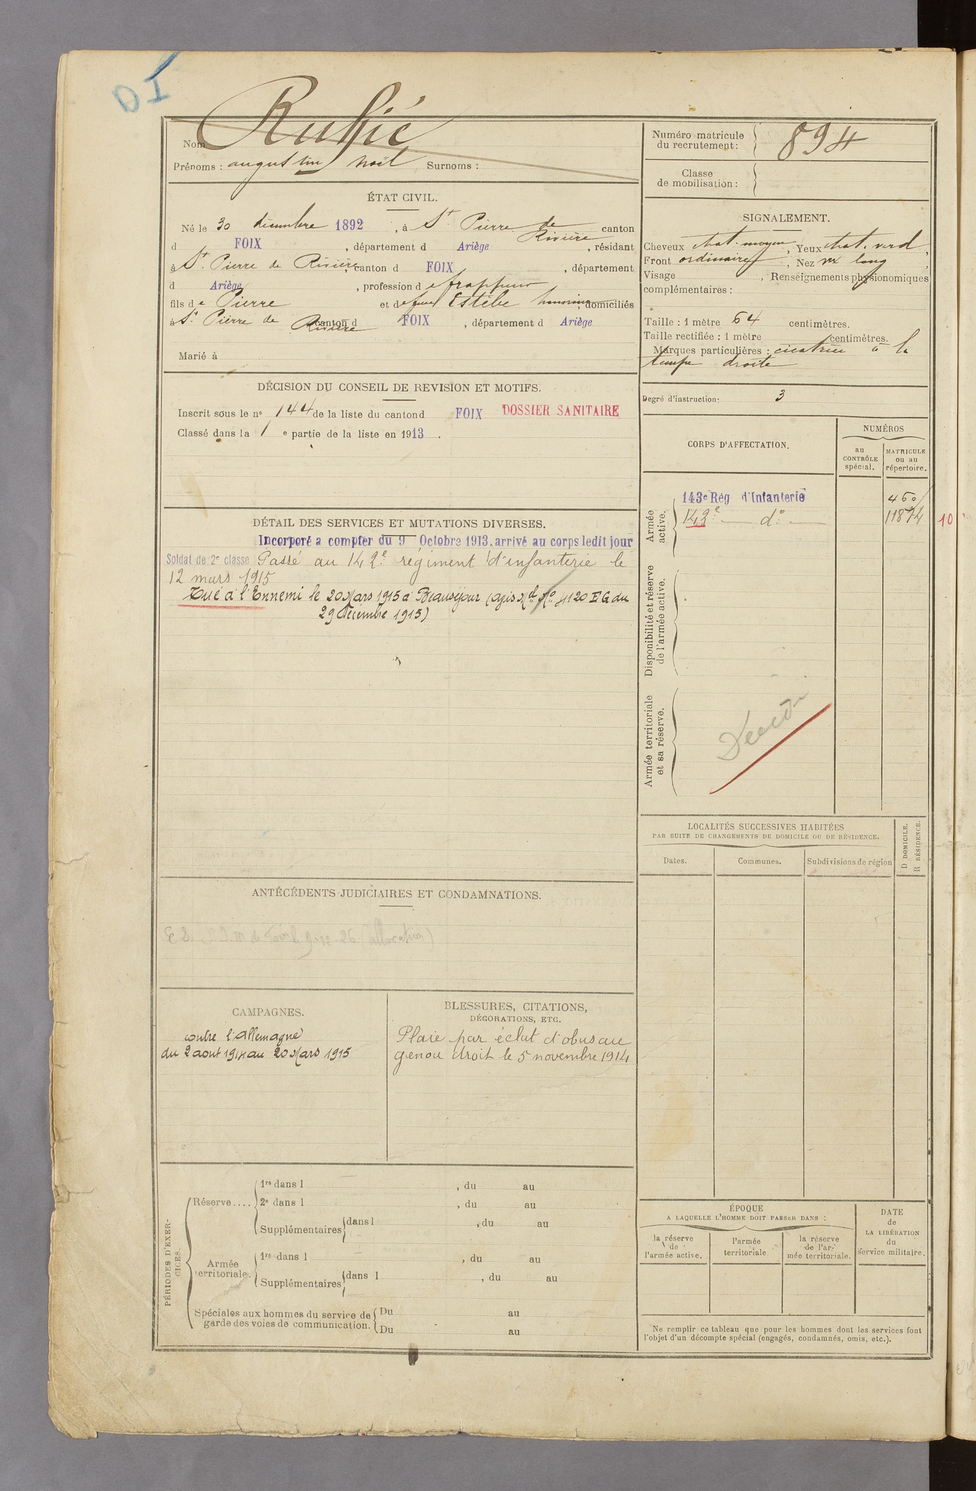 DI
Nom Rufié
Prénoms : augustin noël Surnoms :
Numéro matricule du recrutement : 894
Classe de mobilisation :
ÉTAT CIVIL.
Né le 30 décembre 1892, à St Pierre de Rivière canton
d FOIX, département d Ariège, résidant
à St Pierre de Rivière, canton d FOIX, département
d Ariège, profession de frappeur
fils de Pierre et de Estèbe domiciliés
à St Pierre de Rivière canton d FOIX, département d Ariège
Marié à
SIGNALEMENT.
Cheveux chat. moyen, Yeux chat. verd,
Front ordinaire, Nez long
Visage , Renseignements physionomiques
complémentaires :
Taille : 1 mètre 64 centimètres.
Taille rectifiée : 1 mètre centimètres.
Marques particulières : cicatrice à la
tempe droite
Degré d'instruction : 3
DÉCISION DU CONSEIL DE REVISION ET MOTIFS.
Inscrit sous le no 144 de la liste du canton d FOIX DOSSIER SANITAIRE
Classé dans la 1e partie de la liste en 1913.
DÉTAIL DES SERVICES ET MUTATIONS DIVERSES.
Incorporé à compter du 9 Octobre 1913, arrivé au corps ledit jour
Soldat de 2e classe Passé au 142e régiment d'infanterie le
12 mars 1915
Tué à l'Ennemi le 20 Mars 1915 à Beauséjour (avis du
29 Décembre 1915)
CORPS D'AFFECTATION.
NUMÉROS
au CONTRÔLE spécial.
MATRICULE ou au répertoire.
Armée active.
143e Rég d'Infanterie
142e — do —
11874
10
Disponibilité et réserve de l'armée active.
Armée territoriale et sa réserve.
LOCALITÉS SUCCESSIVES HABITÉES
PAR SUITE DE CHANGEMENTS DE DOMICILE OU DE RÉSIDENCE.
Dates.
Communes.
Subdivisions de région
D DOMICILE.
R RÉSIDENCE.
ANTÉCÉDENTS JUDICIAIRES ET CONDAMNATIONS.
CAMPAGNES.
contre l'Allemagne
du 2 aout 1914 au 20 Mars 1915
BLESSURES, CITATIONS,
DÉCORATIONS, ETC.
Plaie par éclat d'obus au
genou droit le 5 novembre 1914
PÉRIODES D'EXERCICES.
Réserve....
1re dans l , du au
2e dans l , du au
Supplémentaires dans l , du au
Armée territoriale.
1re dans l , du au
Supplémentaires dans l , du au
Spéciales aux hommes du service de
garde des voies de communication.
Du au
Du au
ÉPOQUE
A LAQUELLE L'HOMME DOIT PASSER DANS :
la réserve de l'armée active.
l'armée territoriale
la réserve de l'armée territoriale.
DATE
de
LA LIBÉRATION
du
service militaire.
Ne remplir ce tableau que pour les hommes dont les services font
l'objet d'un décompte spécial (engagés, condamnés, omis, etc.).